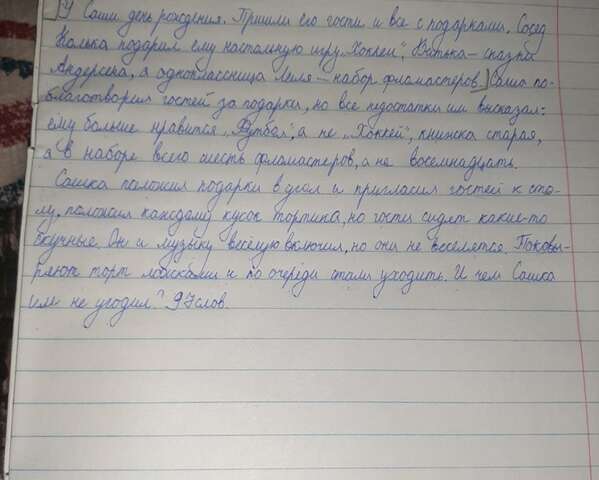 [У Саши день рождения. Пришли его гости и все с подарками. Сосед
Колька подарил ему настольную игру „Хоккей", Витька – сказки
Андерсена, а одноклассница Лиля – набор фломастеров.] Саша по-
благотворил гостей за подарки, но все недостатки им высказал:
ему больше нравится „Футбол", а не „Хоккей", книжка старая,
а в наборе всего шесть фломастеров, а не восемнадцать.
Сашка положил подарки в угол и пригласил гостей к сто-
лу, положил каждому кусок тортика, но гости сидят какие-то
скучные. Он и музыку весёлую включил, но они не веселятся. Поковы-
ряют торт ложками и по очереди стали уходить. И чем Сашка
им не угодил? 97 слов.